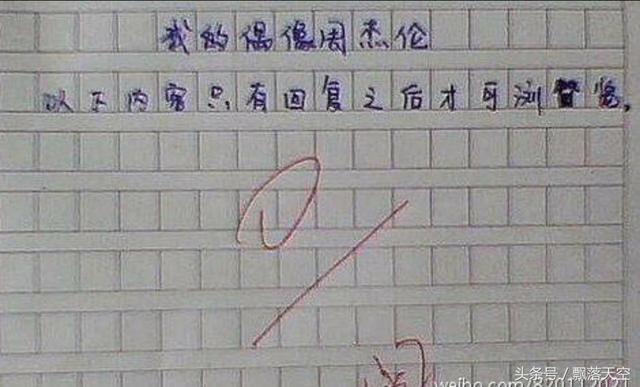 我的偶像周杰伦
以下内容只有回复之后才可浏览。
0
阅
头条号／飘落天空